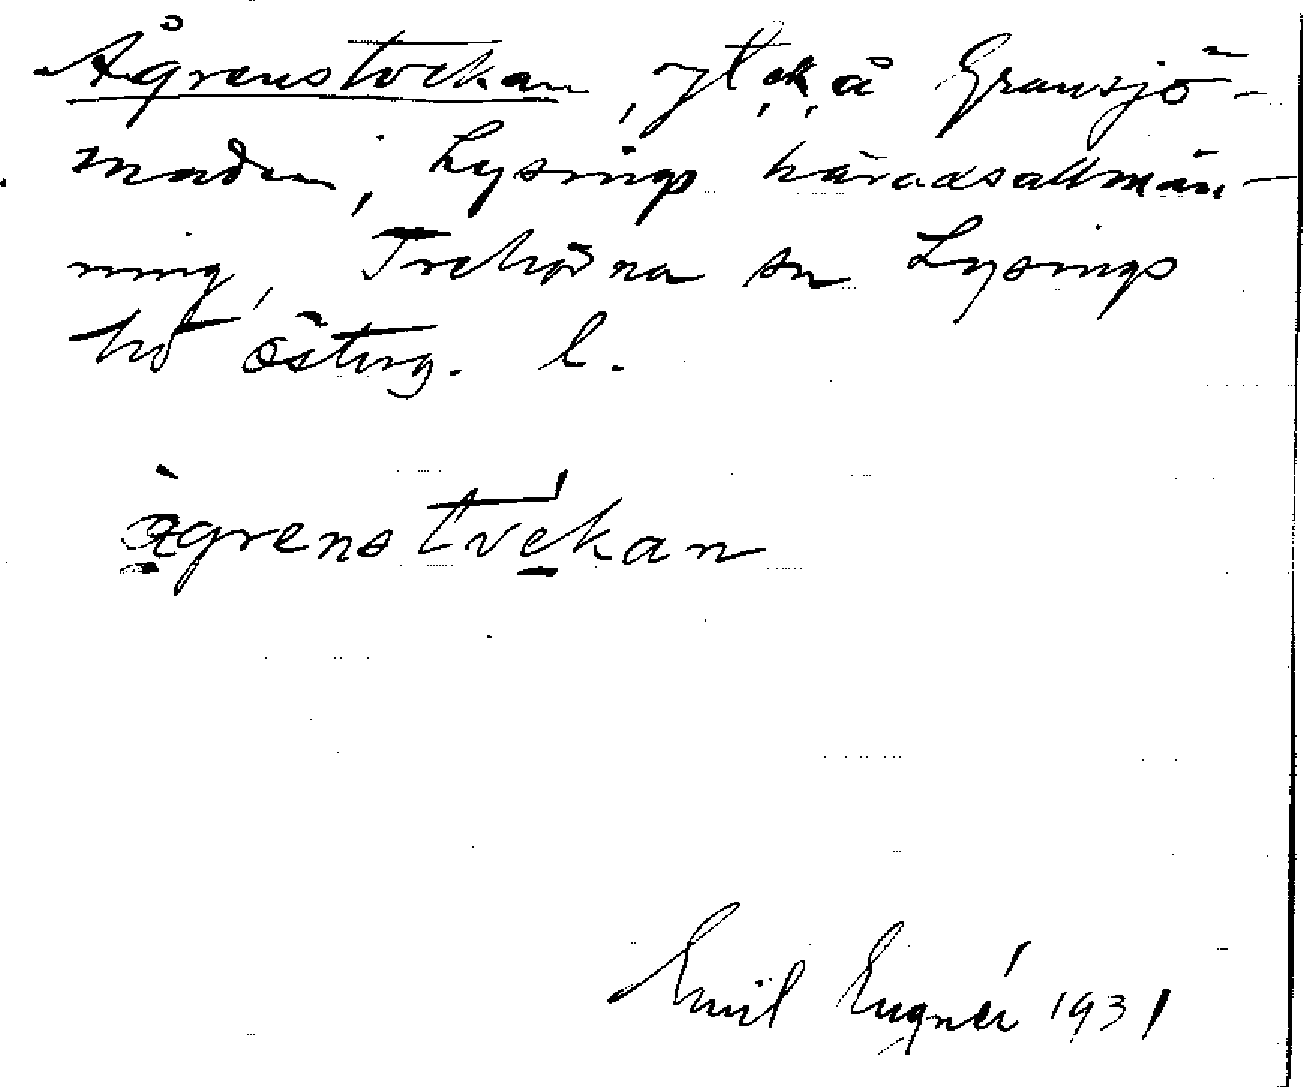 Ågrenstvekan, ytt ok, å Gransjö-
maden, Lysings häradsallmän-
ning, Trehörna sn Lysings
hd Österg. l.
ågrenstvekan
Emil Eugnér 1931